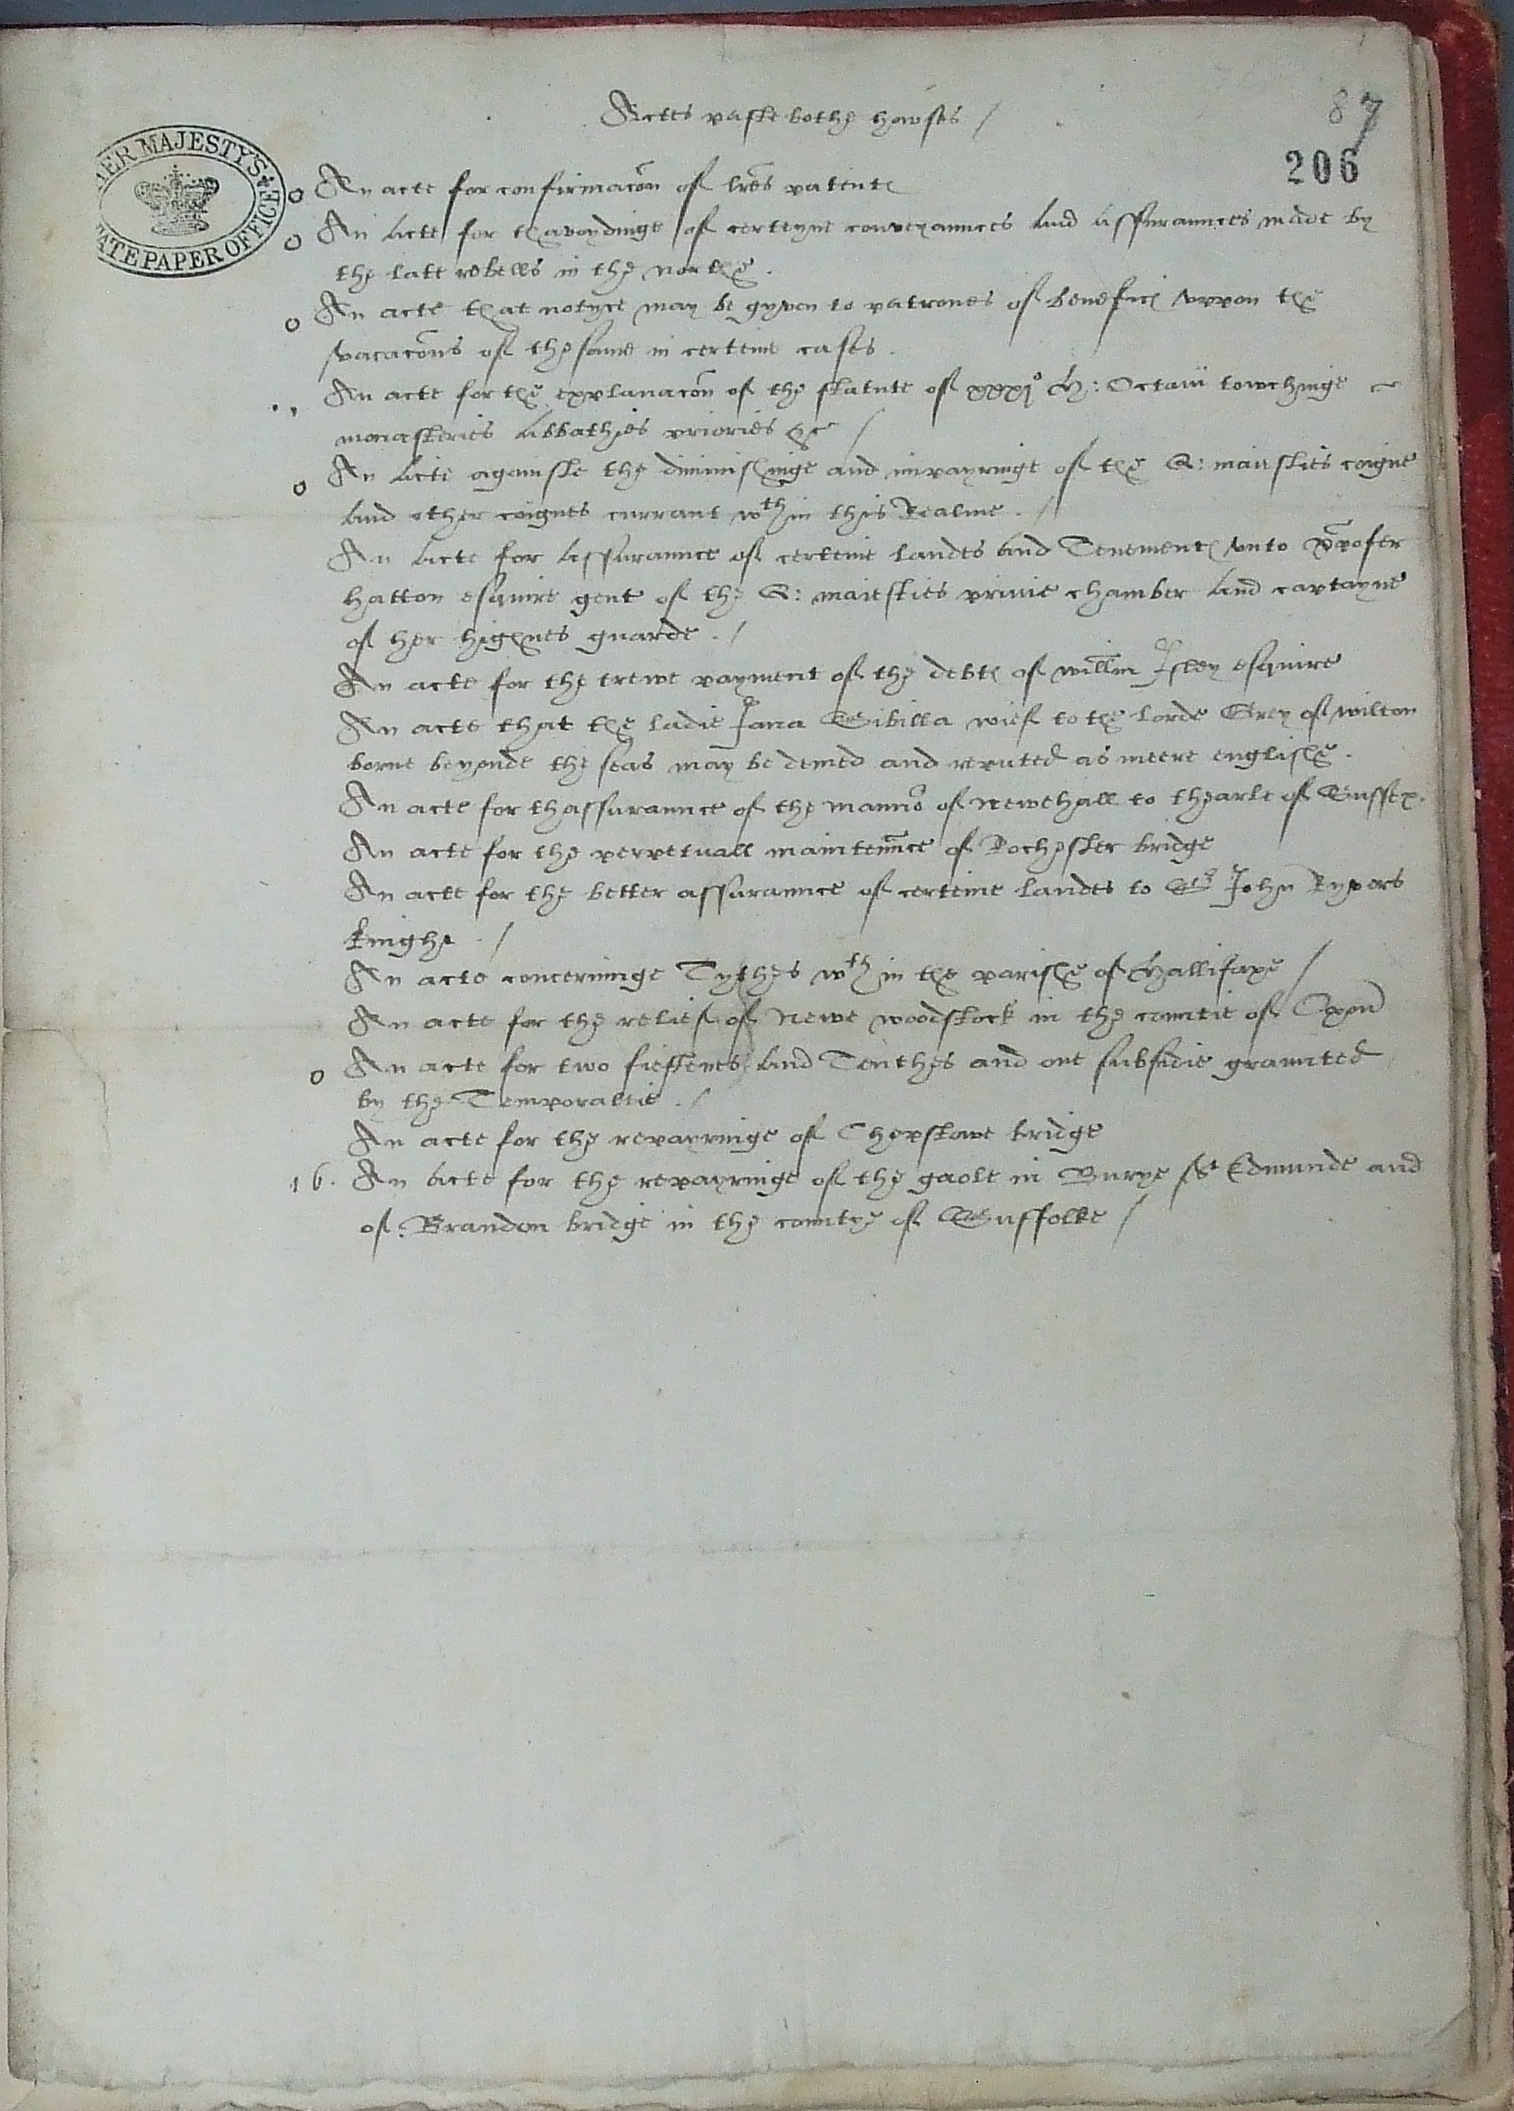 Actes paste bothe howses /
87
206
HER MAJESTY'S
STATE PAPER OFFICE
o An acte for confirmacõn of lr̃es patent
o An acte for thavoydinge of certeyne conveyaunces and assuraunces made by
the late rebells in the northe .
o An acte that notyce may be gyven to patrones of benefic vppon the
vacacõns of the same in certeine cases .
An acte for the explanacõn of the statute of xxxjº H : Octavi towchinge
monasteries abbathies priories &c /
o An acte againste the diminishinge and impayringe of the Q : maiesties coigne
and other coignes currant wth in this Realme . /
An acte for assuraunce of certeine landes and Tenement vnto Xp̃ofer
Hatton esquire gent of the Q : maiesties privie chamber and captayne
of her highnes guarde . /
An acte for the trewe payment of the debt of will̃m Isley esquire
An acte that the ladie Jana Sibilla wief to the lorde Grey of wilton
borne beyonde the seas may be demed and reputed as meere englishe .
An acte for thassuraunce of the manno of newehall to thearle of Sussex .
An acte for the perpetuall maintennce of Rochester bridge
An acte for the better assuraunce of certeine landes to Sr John Ryvers
knighe . /
An acte concerninge Tythes wth in the parishe of Hallifaxe /
An acte for the relief of newe woodstock in the countie of Oxon
o An acte for two fieftenes and Tenthes and one subsidie graunted
by the Temporaltie . /
An acte for the repayringe of Chepstowe bridge
16 . An acte for the repayringe of the gaole in Burye St Edmunde and
of Brandon bridge in the countye of Suffolke /